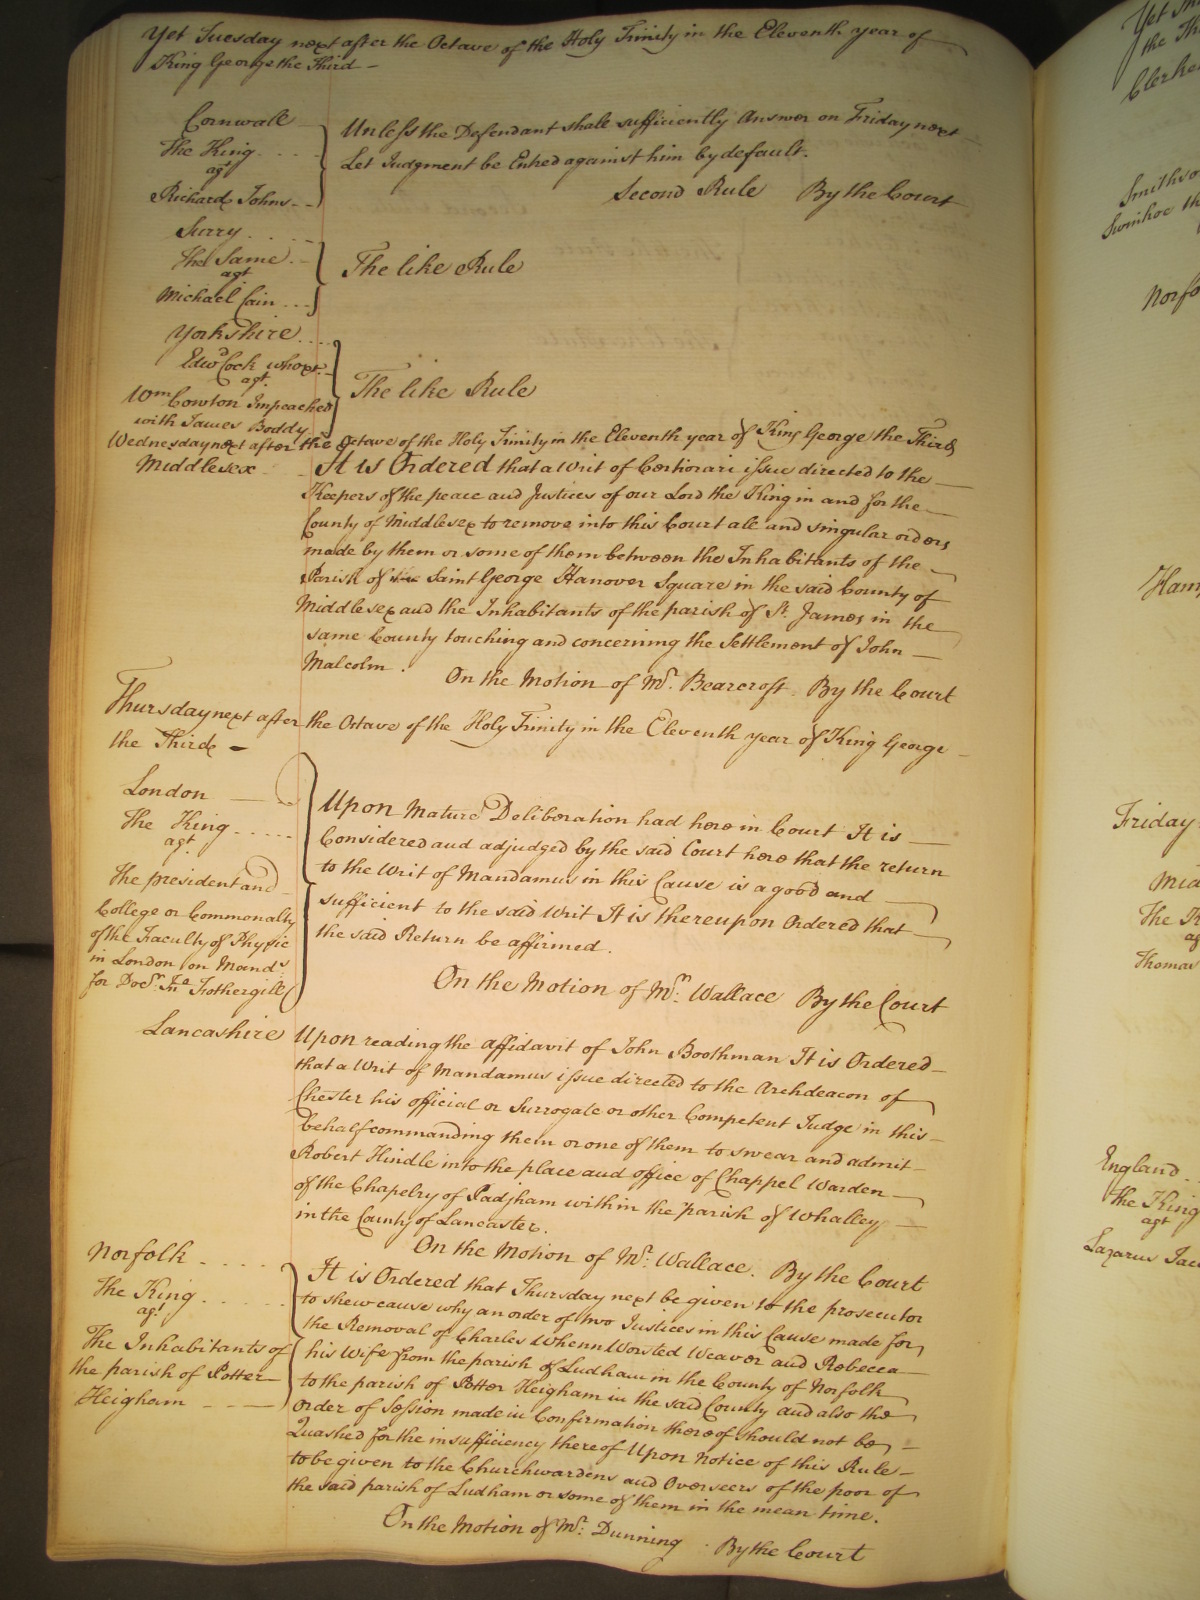 Yet Tuesday next after the Octave of the Holy Trinity in the Eleventh year of
King George the Third
Cornwall
The King
agt
Richard Johns
Unless the Defendant shall sufficiently Answer on Friday next
Let Judgment be Entred against him by default.
Second Rule By the Court
Surry
The Same
agt
Michael Cain
The like Rule
Yorkshire
Edwd Cock who &c
agt
Wm Cowton Impeached
with James Boddy
The like Rule
Wednesday next after the Octave of the Holy Trinity in the Eleventh year of King George the Third
Middlesex
It is Ordered that a Writ of Certiorari issue directed to the
Keepers of the peace and Justices of our Lord the King in and for the
County of Middlesex to remove into this Court all and singular orders
made by them or some of them between the Inhabitants of the
Parish of Saint George Hanover Square in the said County of
Middlesex and the Inhabitants of the parish of St. James in the
same County touching and concerning the Settlement of John
Malcolm.
On the Motion of Mr. Bearcroft. By the Court
Thursday next after the Octave of the Holy Trinity in the Eleventh year of King George
the Third
London
The King
agt
The president and
College or Commonalty
of the Faculty of Physic
in London on Mands
for Docr. Jno Fothergill
Upon Mature Deliberation had here in Court It is
Considered and adjudged by the said Court here that the return
to the Writ of Mandamus in this Cause is a good and
sufficient to the said Writ It is thereupon Ordered that
the said Return be affirmed.
On the Motion of Mr. Wallace By the Court
Lancashire
Upon reading the affidavit of John Boothman It is Ordered
that a Writ of Mandamus issue directed to the Archdeacon of
Chester his official or Surrogate or other Competent Judge in this
behalf commanding them or one of them to swear and admit
Robert Hindle into the place and office of Chappel Warden
of the Chapelry of Padjham within the parish of Whalley
in the County of Lancaster.
On the Motion of Mr. Wallace. By the Court
Norfolk
The King
agt
The Inhabitants of
the parish of Potter
Heigham
It is Ordered that Thursday next be given to the prosecutor
to shew cause why an order of two Justices in this Cause made for
the Removal of Charles Whenn Worsted Weaver and Rebecca
his Wife from the parish of Ludham in the County of Norfolk
to the parish of Potter Heigham in the said County and also the
order of Session made in Confirmation thereof should not be
Quashed for the insufficiency thereof Upon Notice of this Rule
to be given to the Churchwardens and Overseers of the poor of
the said parish of Ludham or some of them in the mean time.
On the Motion of Mr. Dunning. By the Court
Yet
the Th
Clerke
Smithso
Swinhoe th
Norfo
Ham
Friday
Mid
The K
ag
Thomas
England
The King
agt
Lazarus Jac